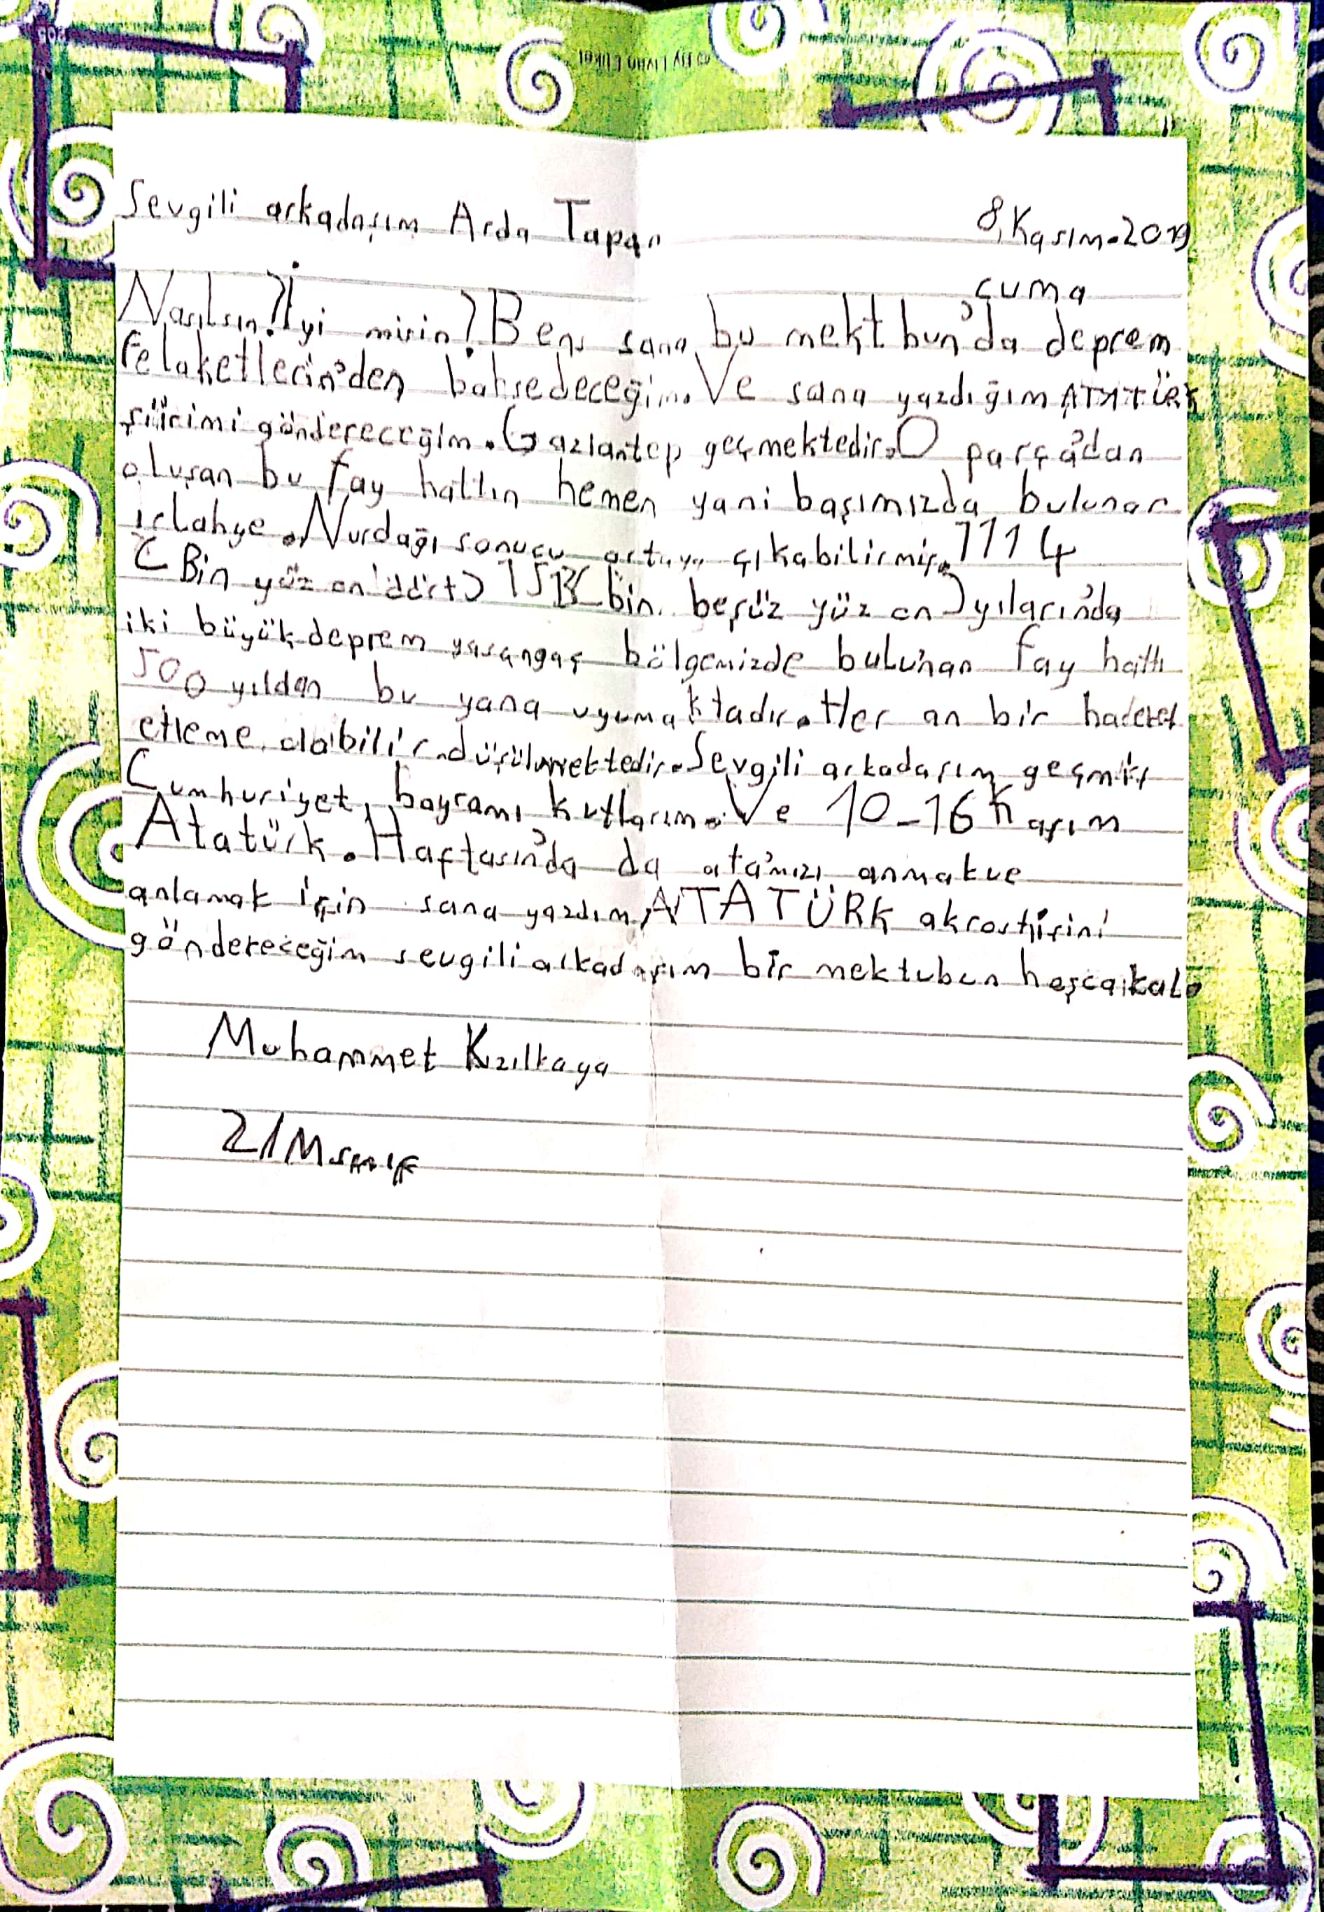 Sevgili arkadaşım Arda Tapan
8.Kasım.2019
cuma
Nasılsın?İyi misin?Ben sana bu mektbun'da deprem
felaketlerin'den bahsedeceğim.Ve sana yazdığım ATATÜRK
şiirimi göndereceğim.Gaziantep geçmektedir.O parça'dan
oluşan bu fay hattın hemen yani başımızda bulunar
islahye.Nurdağı sonucu ortaya çıkabilirmiş.1114
(Bin yüz on dört) bin beşüz yüz on) yılarında
iki büyük deprem yaşangaş bölgemizde bulunan fay hattı
500 yıldan bu yana uyumaktadır.Her an bir hareket
etleme olabilir Sevgili arkadaşım geçmiş
Cumhuriyet bayramı kutlarım.Ve 10-16 Kasım
Atatürk.Haftasın'da da ata'mızı anmak ve
anlamak için sana yazdım ATATÜRK akrostişini
göndereceğim sevgili arkadaşım bir mektuben hoşcakal.
Muhammet Kızılkaya
2/M sınıf